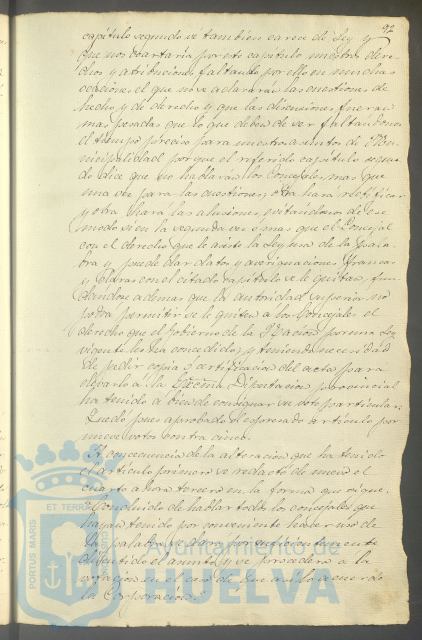 92
capitulo segundo se tambien carece de Ley y
que nos coartaria por esto capitulo nuestros dere-
chos y atribuciones faltando por ello en muchas
ocaciones el que no se aclararan las cuestiones de
hecho y de derecho y que las discusiones fueran
mas pesadas que lo que deben de ser faltandonos
el tiempo preciso para nuestros asuntos de Mu-
nicipalidad porque el referido capitulo segun-
do dice que no hablarán los Concejales mas que
una vez para las cuestiones, otra hará rectificar
y otra hará las alusiones, quitandonos de ese
modo si en la segunda vez o mas que el Concejal
con el derecho que le asiste la Ley usa de la pala-
bra y puede dar datos y averiguaciones francas
y claras con el citado capitulo se le quitan, fun-
dandose ademas que la autoridad superior no
podra permitir se le quiten a los Concejales el
derecho que el Gobierno de la Nacion por una Ley
vigente les ha concedido; y teniendo necesidad
de pedir copia o certificacion del acta para
elevarlo a la Excma. Diputacion provincial
ha tenido a bien de consignar su voto particular.
Quedó pues aprobado el espresado articulo por
nueve votos contra cinco.
A concecuencia de la alteracion que ha tenido
el articulo primero se redactó de nuevo el
cuarto ahora tercero en la forma que sigue.
Concluido de hablar todos los concejales que
hayan tenido por conveniente hacer uso de
la palabra se dara por suficientemente
discutido el asunto, y se procedera a la
votacion en el caso de que asi lo acuerde
la Corporacion.
PORTUS MARIS
ET TERRAE
Ayuntamiento de
HUELVA